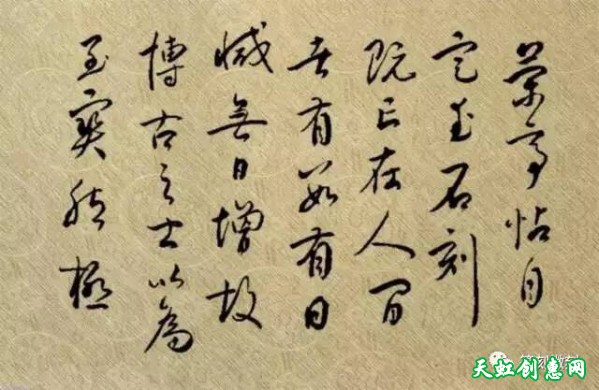 蘭亭帖自
定武石刻
既亡在人間
者有數有日
減無日增故
博古之士以為
至寶然極
天虹创惠网